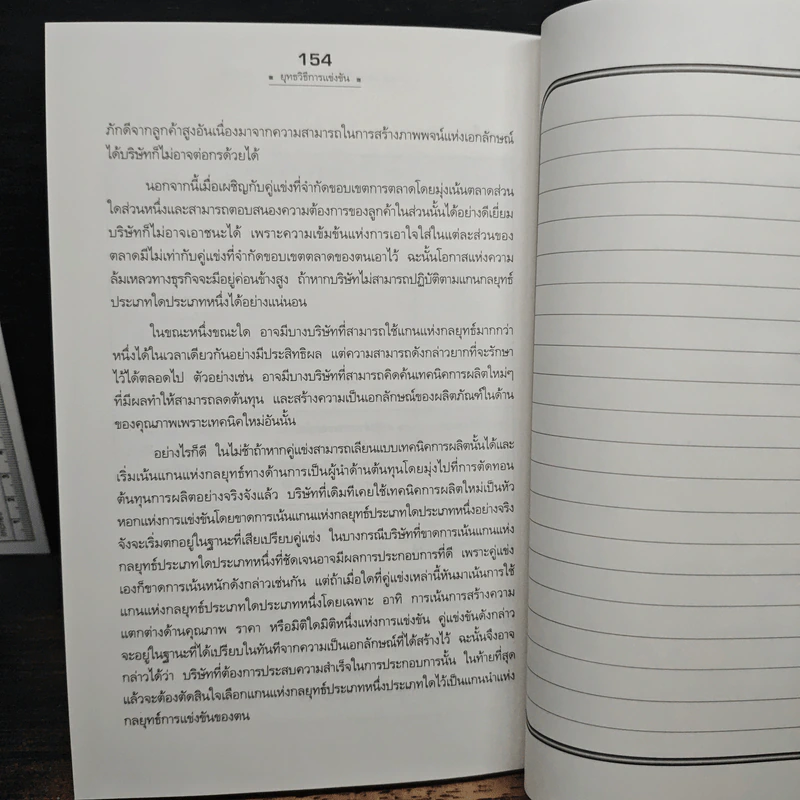 154
ยุทธวิธีการแข่งขัน
ภักดีจากลูกค้าสูงอันเนื่องมาจากความสามารถในการสร้างภาพพจน์แห่งเอกลักษณ์
ได้บริษัทก็ไม่อาจต่อกรด้วยได้
นอกจากนี้เมื่อเผชิญกับคู่แข่งที่จำกัดขอบเขตการตลาดโดยมุ่งเน้นตลาดส่วน
ใดส่วนหนึ่งและสามารถตอบสนองความต้องการของลูกค้าในส่วนนั้นได้อย่างดีเยี่ยม
บริษัทก็ไม่อาจเอาชนะได้ เพราะความเข้มข้นแห่งการเอาใจใส่ในแต่ละส่วนของ
ตลาดมีไม่เท่ากับคู่แข่งที่จำกัดขอบเขตตลาดของตนเอาไว้ ฉะนั้นโอกาสแห่งความ
ล้มเหลวทางธุรกิจจะมีอยู่ค่อนข้างสูง ถ้าหากบริษัทไม่สามารถปฏิบัติตามแกนกลยุทธ์
ประเภทใดประเภทหนึ่งได้อย่างแน่นอน
ในขณะหนึ่งขณะใด อาจมีบางบริษัทที่สามารถใช้แกนแห่งกลยุทธ์มากกว่า
หนึ่งได้ในเวลาเดียวกันอย่างมีประสิทธิผล แต่ความสามารถดังกล่าวยากที่จะรักษา
ไว้ได้ตลอดไป ตัวอย่างเช่น อาจมีบางบริษัทที่สามารถคิดค้นเทคนิคการผลิตใหม่ๆ
ที่มีผลทำให้สามารถลดต้นทุน และสร้างความเป็นเอกลักษณ์ของผลิตภัณฑ์ในด้าน
ของคุณภาพเพราะเทคนิคใหม่อันนั้น
อย่างไรก็ดี ในไม่ช้าถ้าหากคู่แข่งสามารถเลียนแบบเทคนิคการผลิตนั้นได้และ
เริ่มเน้นแกนแห่งกลยุทธ์ทางด้านการเป็นผู้นำด้านต้นทุนโดยมุ่งไปที่การตัดทอน
ต้นทุนการผลิตอย่างจริงจังแล้ว บริษัทที่เดิมทีเคยใช้เทคนิคการผลิตใหม่เป็นหัว
หอกแห่งการแข่งขันโดยขาดการเน้นแกนแห่งกลยุทธ์ประเภทใดประเภทหนึ่งอย่างจริง
จังจะเริ่มตกอยู่ในฐานะที่เสียเปรียบคู่แข่ง ในบางกรณีบริษัทที่ขาดการเน้นแกนแห่ง
กลยุทธ์ประเภทใดประเภทหนึ่งที่ชัดเจนอาจมีผลการประกอบการที่ดี เพราะคู่แข่ง
เองก็ขาดการเน้นหนักดังกล่าวเช่นกัน แต่ถ้าเมื่อใดที่คู่แข่งเหล่านี้หันมาเน้นการใช้
แกนแห่งกลยุทธ์ประเภทใดประเภทหนึ่งโดยเฉพาะ อาทิ การเน้นการสร้างความ
แตกต่างด้านคุณภาพ ราคา หรือมิติใดมิติหนึ่งแห่งการแข่งขัน คู่แข่งขันดังกล่าว
จะอยู่ในฐานะที่ได้เปรียบในทันทีจากความเป็นเอกลักษณ์ที่ได้สร้างไว้ ฉะนั้นจึงอาจ
กล่าวได้ว่า บริษัทที่ต้องการประสบความสำเร็จในการประกอบการนั้น ในท้ายที่สุด
แล้วจะต้องตัดสินใจเลือกแกนแห่งกลยุทธ์ประเภทหนึ่งประเภทใดไว้เป็นแกนนำแห่ง
กลยุทธ์การแข่งขันของตน